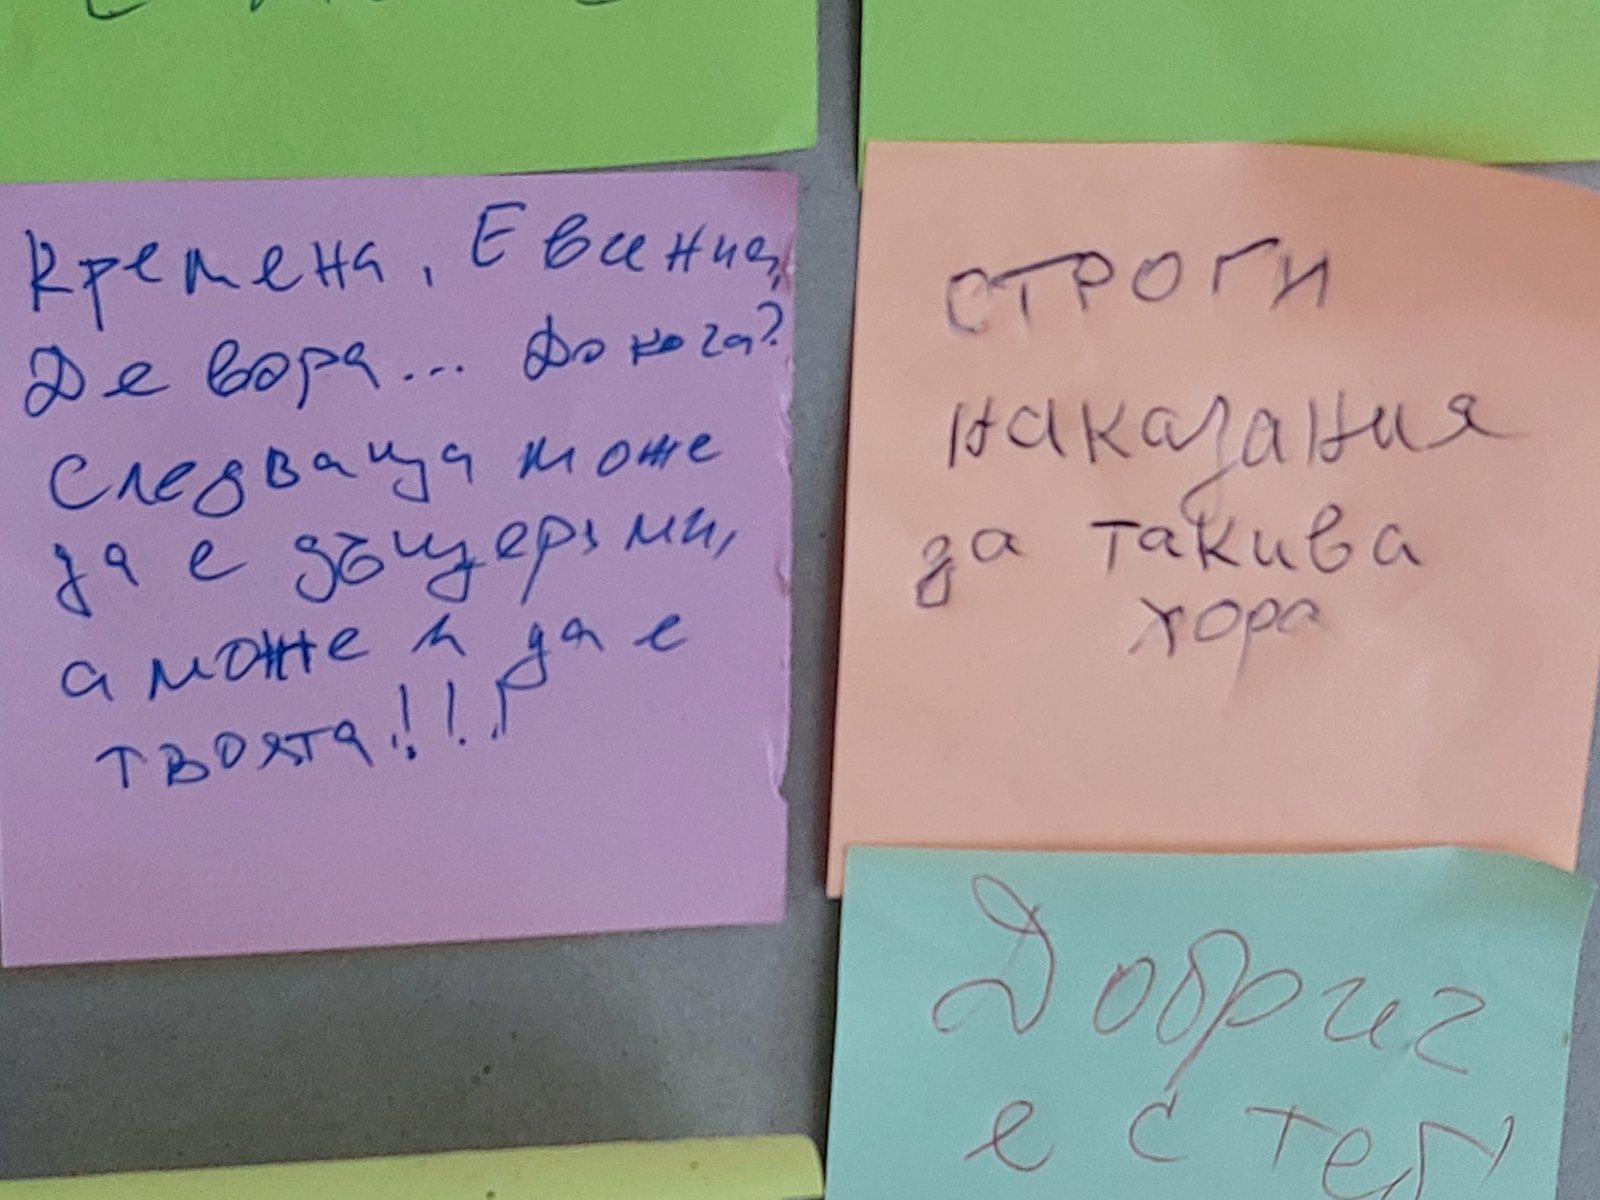 Кремена, Евгения,
Девора... Докога?
Следваща може
да е дъщеря ми,
а може и да е
твоята!!!
СТРОГИ
наказания
за такива
хора
Добрич
е с теб